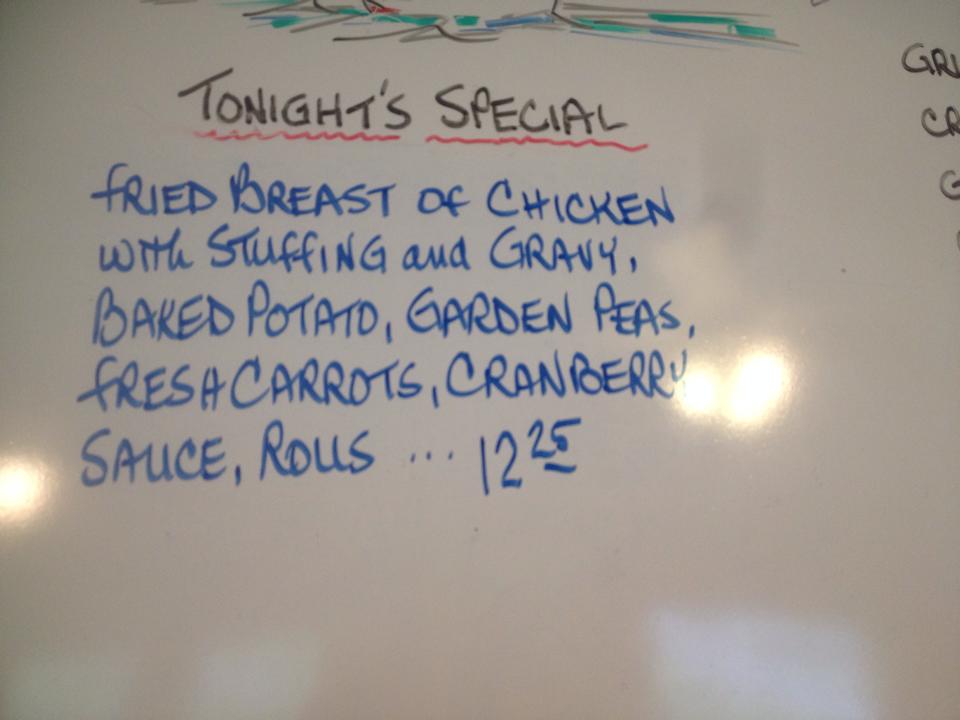 TONIGHT'S SPECIAL
FRIED BREAST OF CHICKEN
with STUFFING and GRAVY,
BAKED POTATO, GARDEN PEAS,
FRESH CARROTS, CRANBERRY
SAUCE, ROLLS ... 12 25